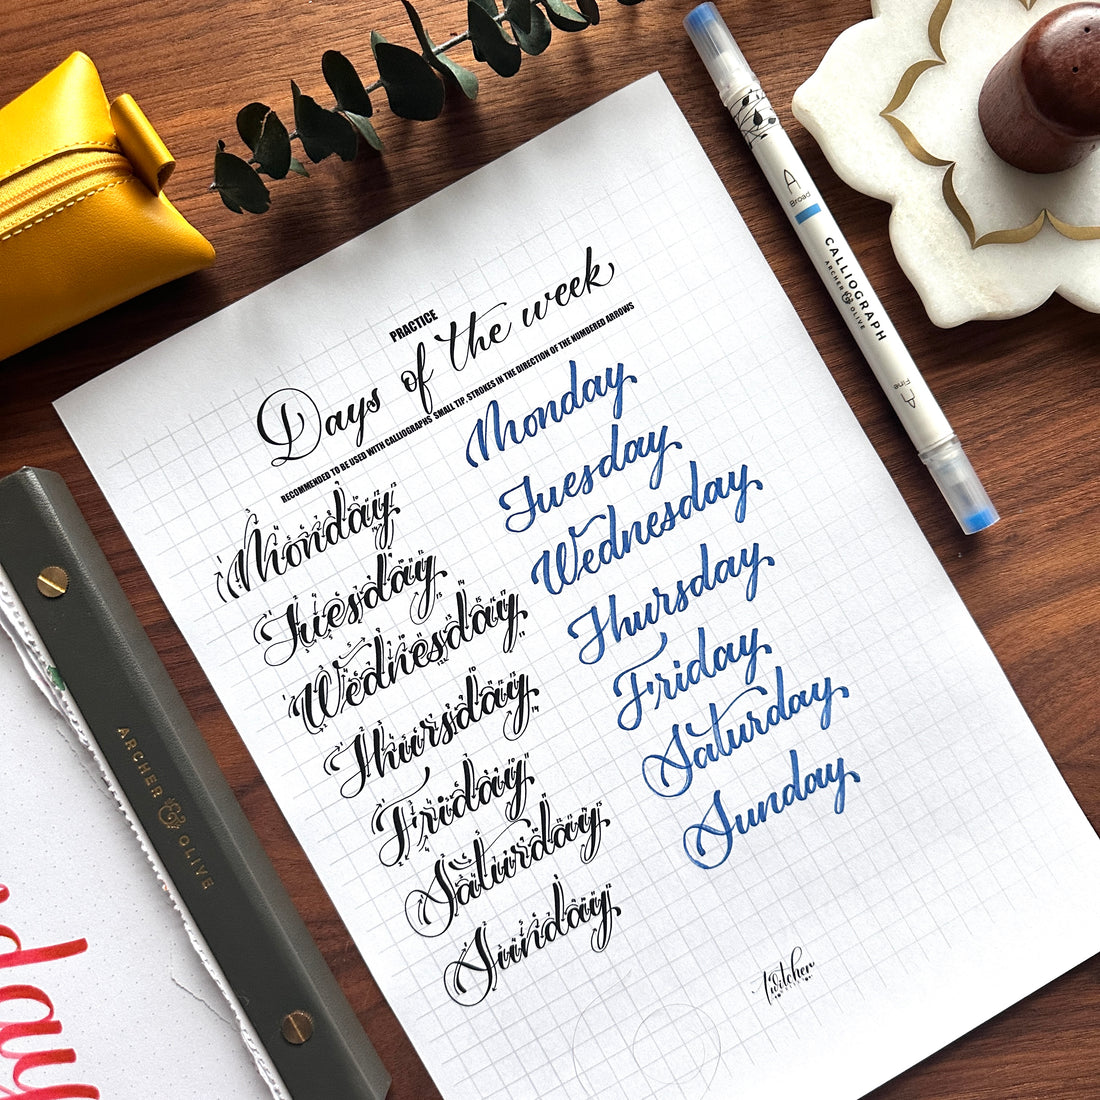 PRACTICE
Days of the week
RECOMMENDED TO BE USED WITH CALLIOGRAPHS SMALL TIP. STROKES IN THE DIRECTION OF THE NUMBERED ARROWS
Monday
Tuesday
Wednesday
Thursday
Friday
Saturday
Sunday
Monday
Tuesday
Wednesday
Thursday
Friday
Saturday
Sunday
A
Broad
CALLIOGRAPH
ARCHER & OLIVE
A
Fine
ARCHER & OLIVE
day